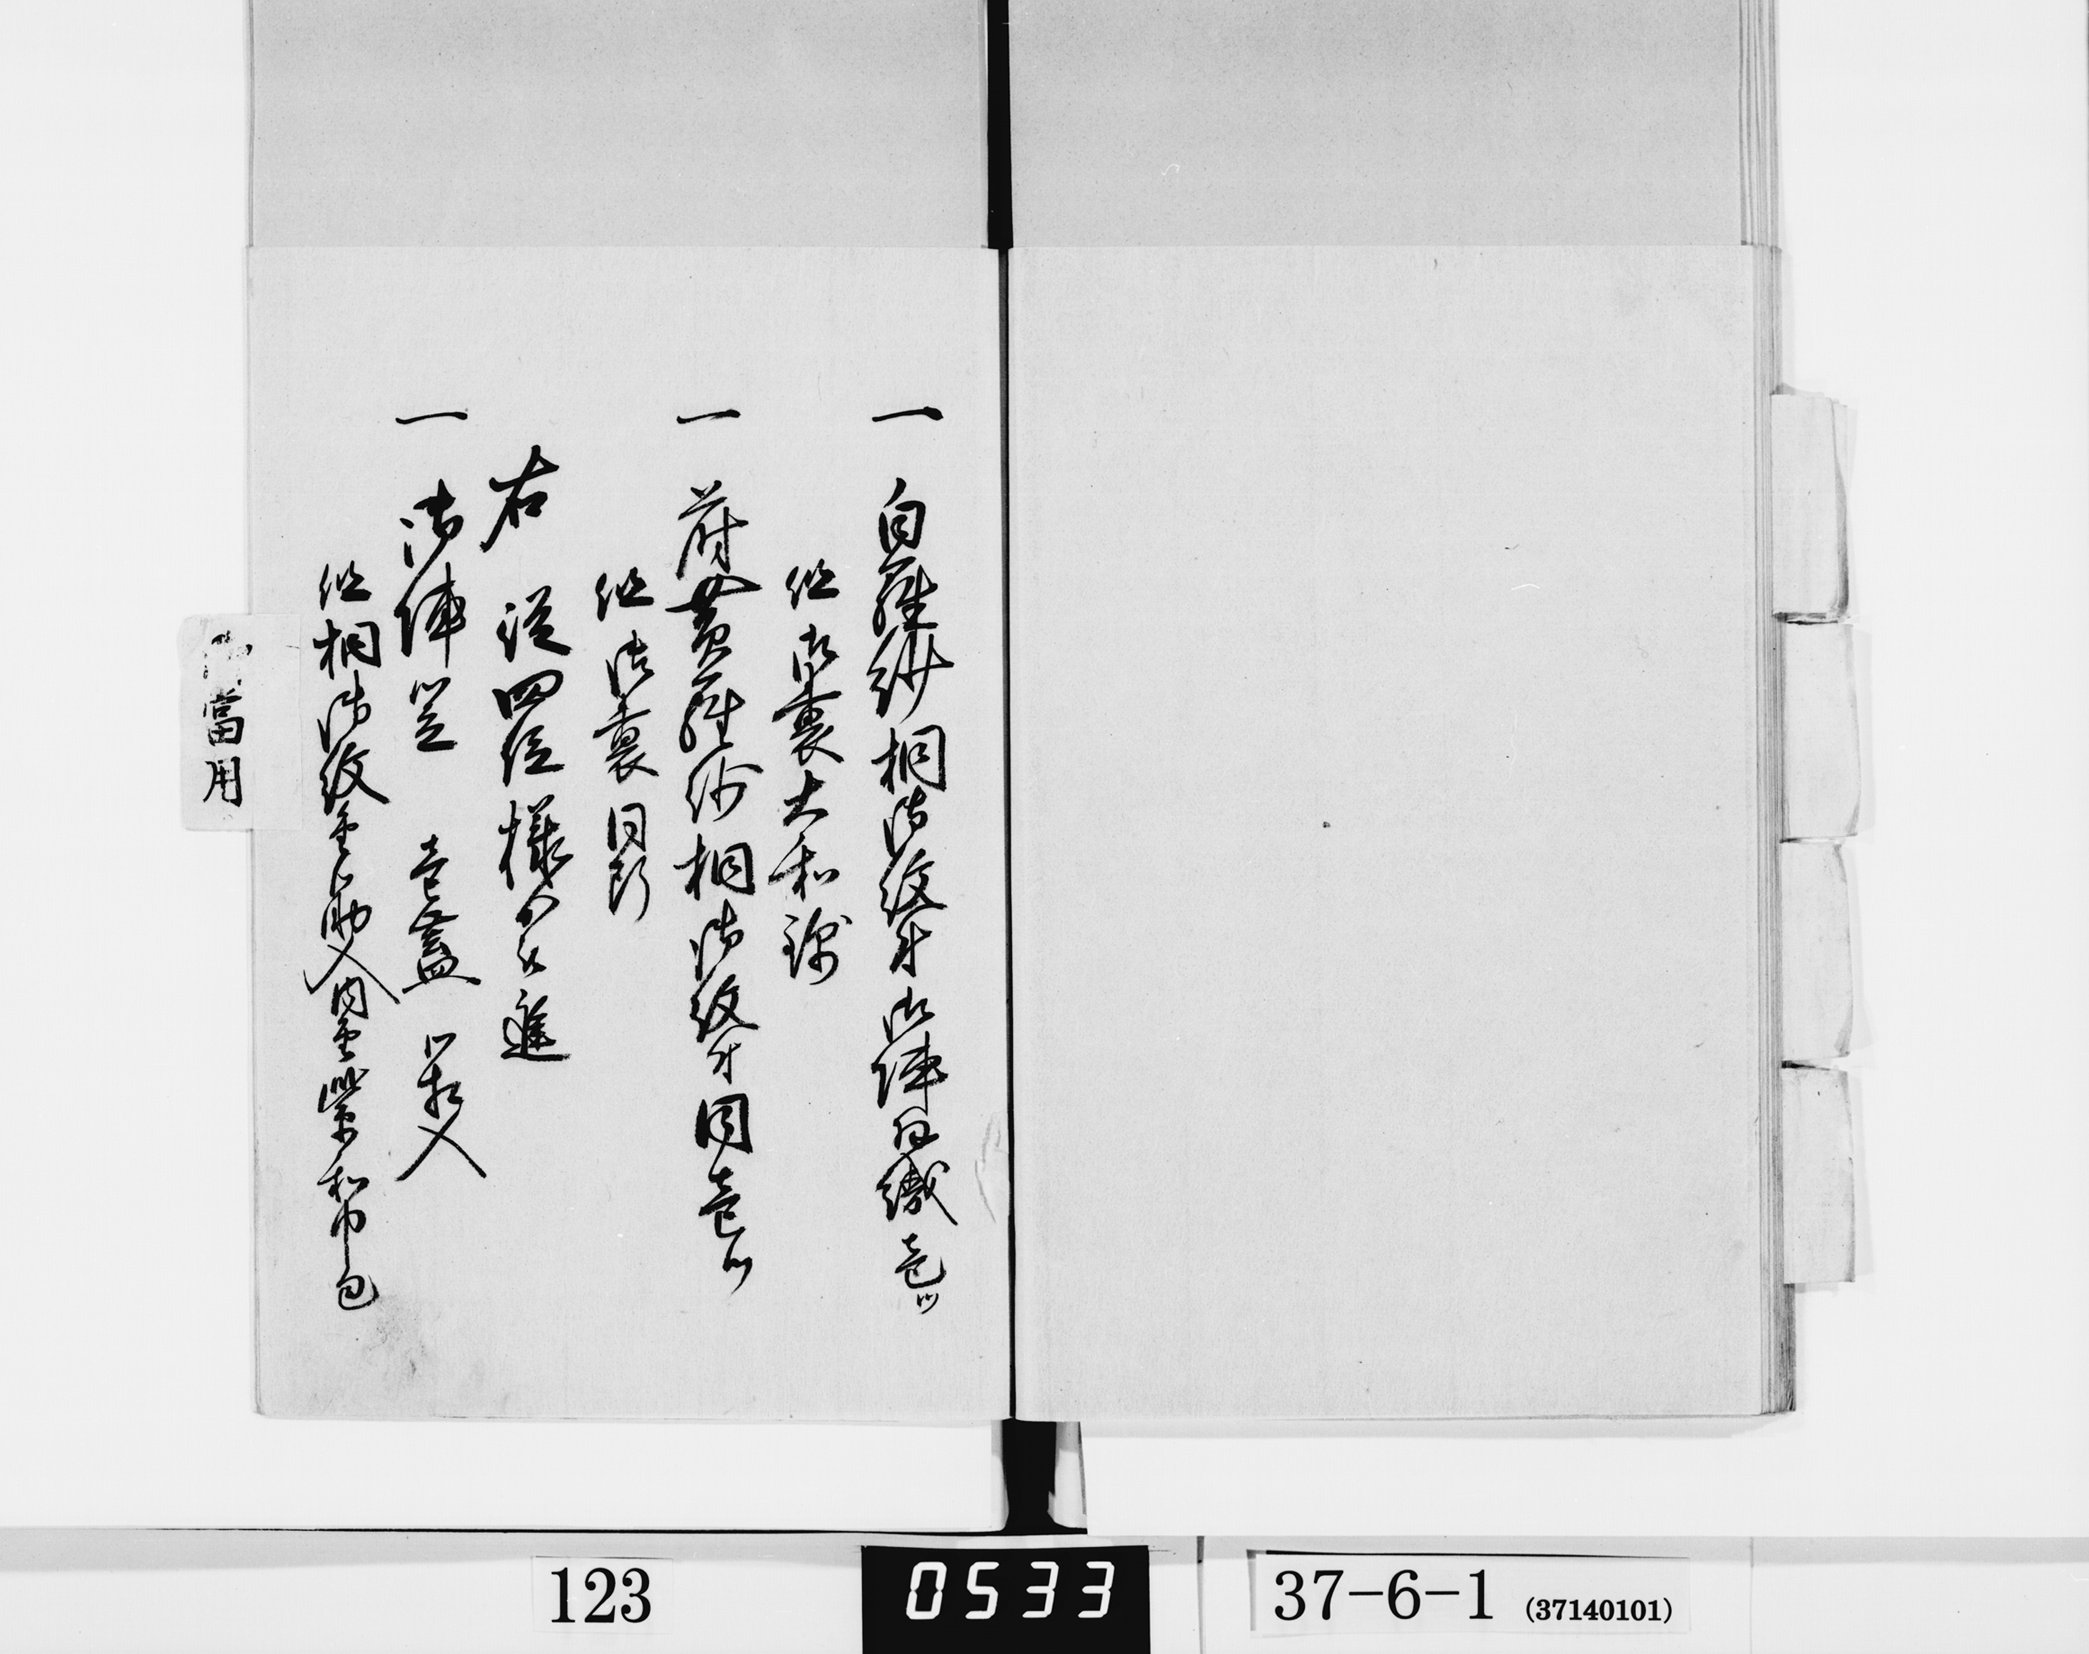 一 白羅紗桐御紋付御陣羽織壱ツ
但御裏大和錦
一 萌黄羅紗桐御紋付同壱ツ
但御裏同断
右 従四位様より被進
一 御陣笠 壱蓋 箱入
但桐御紋金
入内金紫和巾包
御當用
123
0533
37-6-1 (37140101)